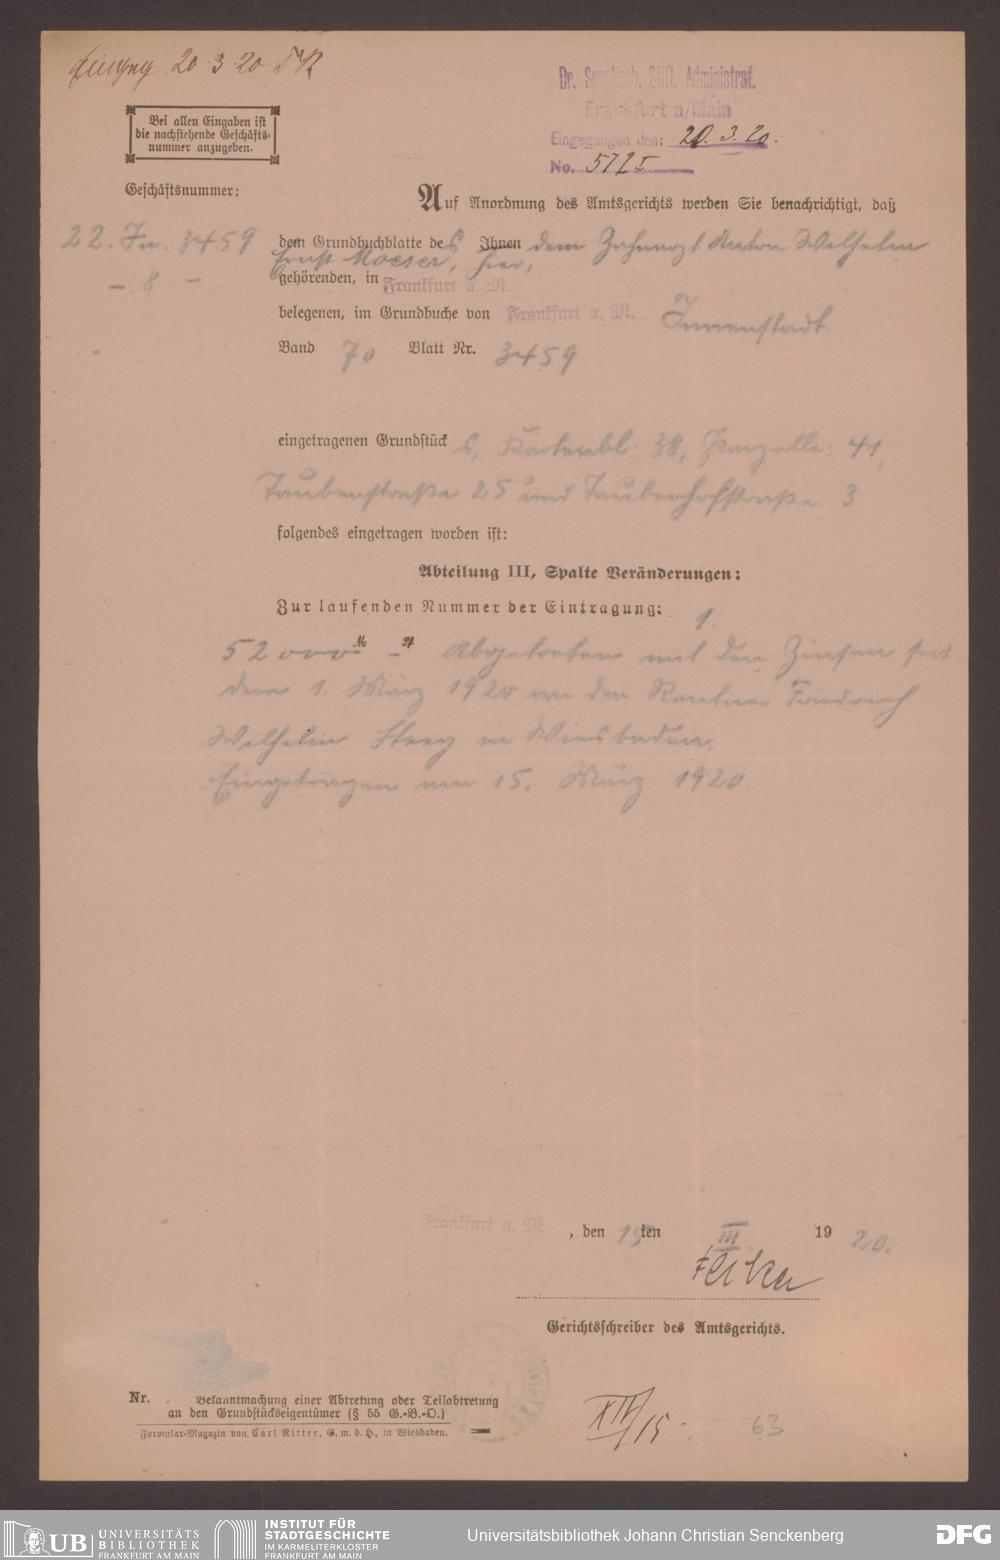 Eingang 20 3 20
Dr. Senckenb. Stift. Administrat.
Frankfurt a/Main
Eingegangen den: 20. 3. 20.
No. 572 I
Bei allen Eingaben ist
die nachstehende Geschäfts-
nummer anzugeben.
Geschäftsnummer:
22. In. 3459
- 8 -
Auf Anordnung des Amtsgerichts werden Sie benachrichtigt, daß
dem Grundbuchblatte des Ihnen dem Zahnarzt Anton Wilhelm
Ernst Moeser, hier,
gehörenden, in Frankfurt a. M.
belegenen, im Grundbuche von Frankfurt a. M. Innenstadt
Band 70 Blatt Nr. 3459
eingetragenen Grundstücks, Kartenbl: 38, Parzelle: 41,
Taubenstraße 25 und Taubenhofstraße 3
folgendes eingetragen worden ist:
Abteilung III, Spalte Veränderungen:
Zur laufenden Nummer der Eintragung: 1.
52000 M - Pf Abgetreten mit den Zinsen seit
dem 1. März 1920 an den Rentner Friedrich
Wilhelm in Wiesbaden.
Eingetragen am 15. März 1920.
Frankfurt a. M., den 19ten III 1920.
Gerichtsschreiber des Amtsgerichts.
Nr. . Bekanntmachung einer Abtretung oder Teilabtretung
an den Grundstückseigentümer (§ 55 G.-B.-O.)
Formular-Magazin von Carl Ritter, G. m. b. H., in Wiesbaden.
63
UB UNIVERSITÄTS
BIBLIOTHEK
FRANKFURT AM MAIN
INSTITUT FÜR
STADTGESCHICHTE
IM KARMELITERKLOSTER
FRANKFURT AM MAIN
Universitätsbibliothek Johann Christian Senckenberg
DFG